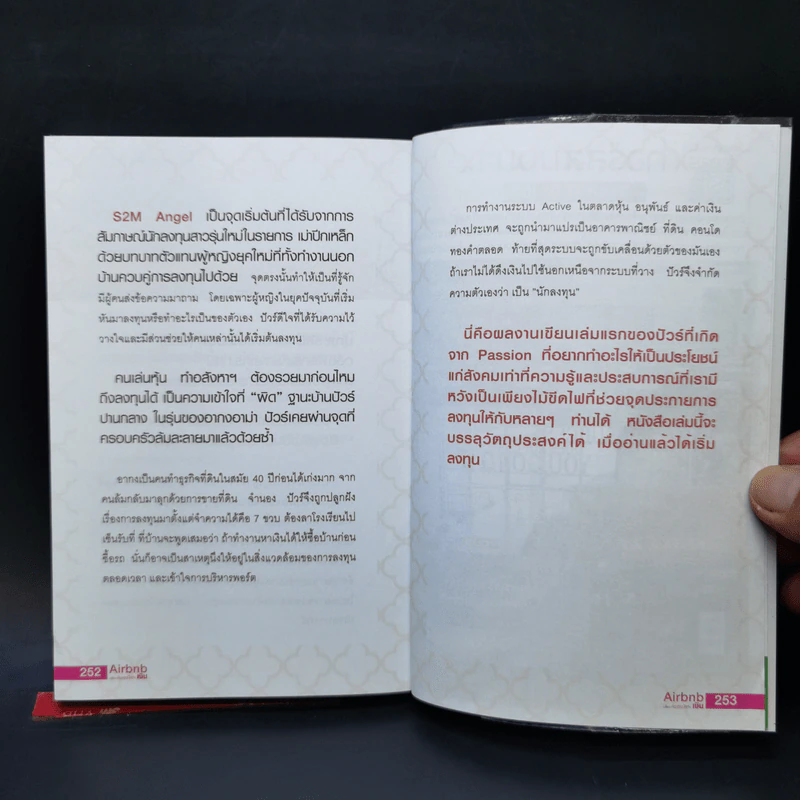 S2M Angel เป็นจุดเริ่มต้นที่ได้รับจากการ
สัมภาษณ์นักลงทุนสาวรุ่นใหม่ในรายการ เม่าปีกเหล็ก
ด้วยบทบาทตัวแทนผู้หญิงยุคใหม่ที่ทั้งทำงานนอก
บ้านควบคู่การลงทุนไปด้วย จุดตรงนั้นทำให้เป็นที่รู้จัก
มีผู้คนส่งข้อความมาถาม โดยเฉพาะผู้หญิงในยุคปัจจุบันที่เริ่ม
หันมาลงทุนหรือทำอะไรเป็นของตัวเอง ปัวร์ดีใจที่ได้รับความไว้
วางใจและมีส่วนช่วยให้คนเหล่านั้นได้เริ่มต้นลงทุน
คนเล่นหุ้น ทำอสังหาฯ ต้องรวยมาก่อนไหม
ถึงลงทุนได้ เป็นความเข้าใจที่ "ผิด" ฐานะบ้านปัวร์
ปานกลาง ในรุ่นของอากงอาม่า ปัวร์เคยผ่านจุดที่
ครอบครัวล้มละลายมาแล้วด้วยซ้ำ
อากงเป็นคนทำธุรกิจที่ดินในสมัย 40 ปีก่อนได้เก่งมาก จาก
คนล้มกลับมาลุกด้วยการขายที่ดิน จำนอง ปัวร์จึงถูกปลูกฝัง
เรื่องการลงทุนมาตั้งแต่จำความได้คือ 7 ขวบ ต้องลาโรงเรียนไป
เซ็นรับที่ ที่บ้านจะพูดเสมอว่า ถ้าทำงานหาเงินได้ให้ซื้อบ้านก่อน
ซื้อรถ นั่นก็อาจเป็นสาเหตุนึงให้อยู่ในสิ่งแวดล้อมของการลงทุน
ตลอดเวลา และเข้าใจการบริหารพอร์ต
252 Airbnb
การทำงานระบบ Active ในตลาดหุ้น อนุพันธ์ และค่าเงิน
ต่างประเทศ จะถูกนำมาแปรเป็นอาคารพาณิชย์ ที่ดิน คอนโด
ทองคำตลอด ท้ายที่สุดระบบจะถูกขับเคลื่อนด้วยตัวของมันเอง
ถ้าเราไม่ได้ดึงเงินไปใช้นอกเหนือจากระบบที่วาง ปัวร์จึงจำกัด
ความตัวเองว่า เป็น "นักลงทุน"
นี่คือผลงานเขียนเล่มแรกของปัวร์ที่เกิด
จาก Passion ที่อยากทำอะไรให้เป็นประโยชน์
แก่สังคมเท่าที่ความรู้และประสบการณ์ที่เรามี
หวังเป็นเพียงไม้ขีดไฟที่ช่วยจุดประกายการ
ลงทุนให้กับหลายๆ ท่านได้ หนังสือเล่มนี้จะ
บรรลุวัตถุประสงค์ได้ เมื่ออ่านแล้วได้เริ่ม
ลงทุน
Airbnb 253